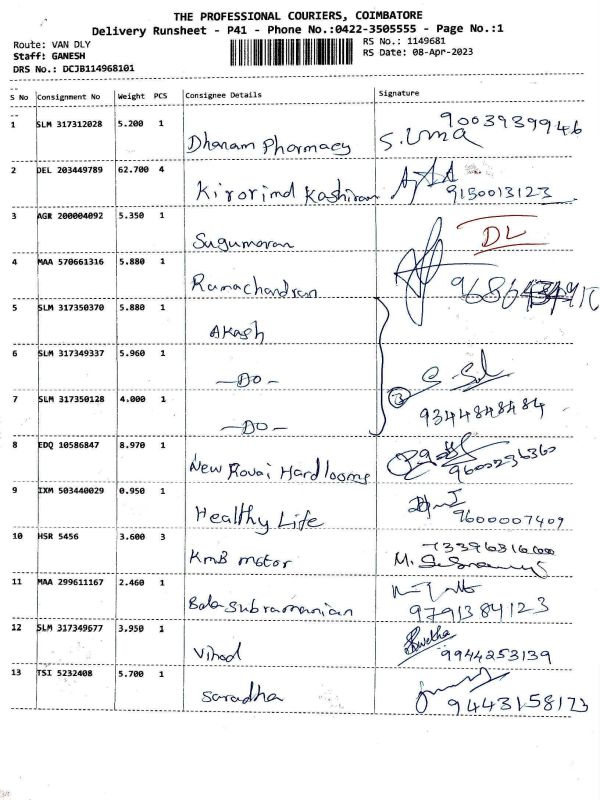 THE PROFESSIONAL COURIERS, COIMBATORE
Delivery Runsheet - P41 - Phone No.:0422-3505555 - Page No.:1
Route: VAN DLY RS No.: 1149681
Staff: GANESH RS Date: 08-Apr-2023
DRS No.: DCJB114968101
S No Consignment No Weight PCS Consignee Details Signature
1 SLM 317312028 5.200 1 Dhanam Pharmacy S.Uma 9003939946
2 DEL 203449789 62.700 4 9150013123
3 AGR 200004092 5.350 1 Sugumaran DL
4 MAA 570661316 5.880 1 Ramachandran
5 SLM 317350370 5.880 1 Akash
6 SLM 317349337 5.960 1 -DO-
7 SLM 317350128 4.000 1 -DO- 3 9344848484
8 EDQ 10586847 8.970 1 New 9600236360
9 IXM 503440029 0.950 1 Healthy Life 9600007409
10 HSR 5456 3.600 3 KMB motor
11 MAA 299611167 2.460 1 Balasubramanian 9791384123
12 SLM 317349677 3.950 1 Swetha 9944253139
13 TSI 5232408 5.700 1 Saradha 9443158173